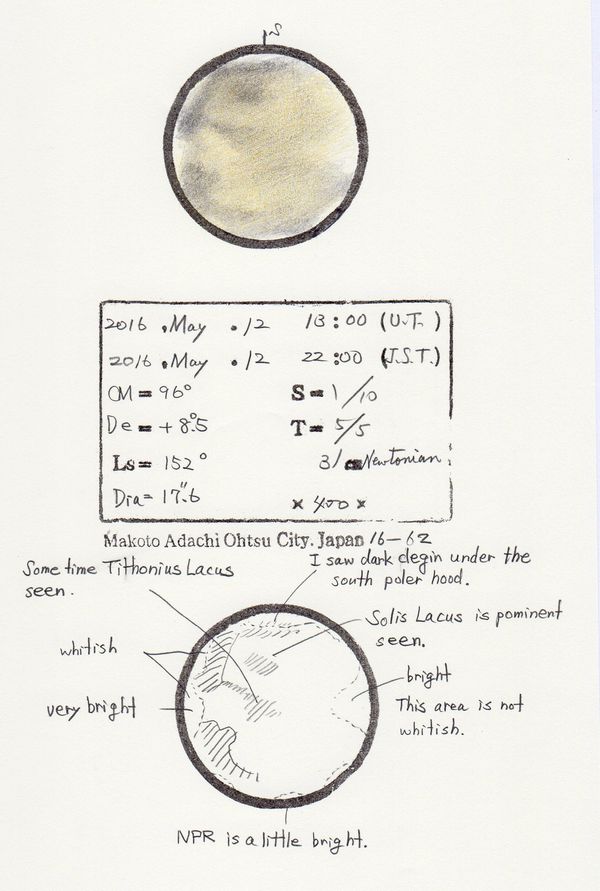 S
2016 . May . 12 13:00 (U.T.)
2016 . May . 12 22:00 (J.S.T.)
CM = 96° S = 1/10
De = +8°.5 T = 5/5
Ls = 152° 31 cm Newtonian
Dia = 17".6 × 400 ×
Makoto Adachi Ohtsu City. Japan 16-62
Some time Tithonius Lacus
seen.
I saw dark degin under the
south poler hood.
Solis Lacus is pominent
seen.
whitish
very bright
bright
This area is not
whitish.
NPR is a little bright.